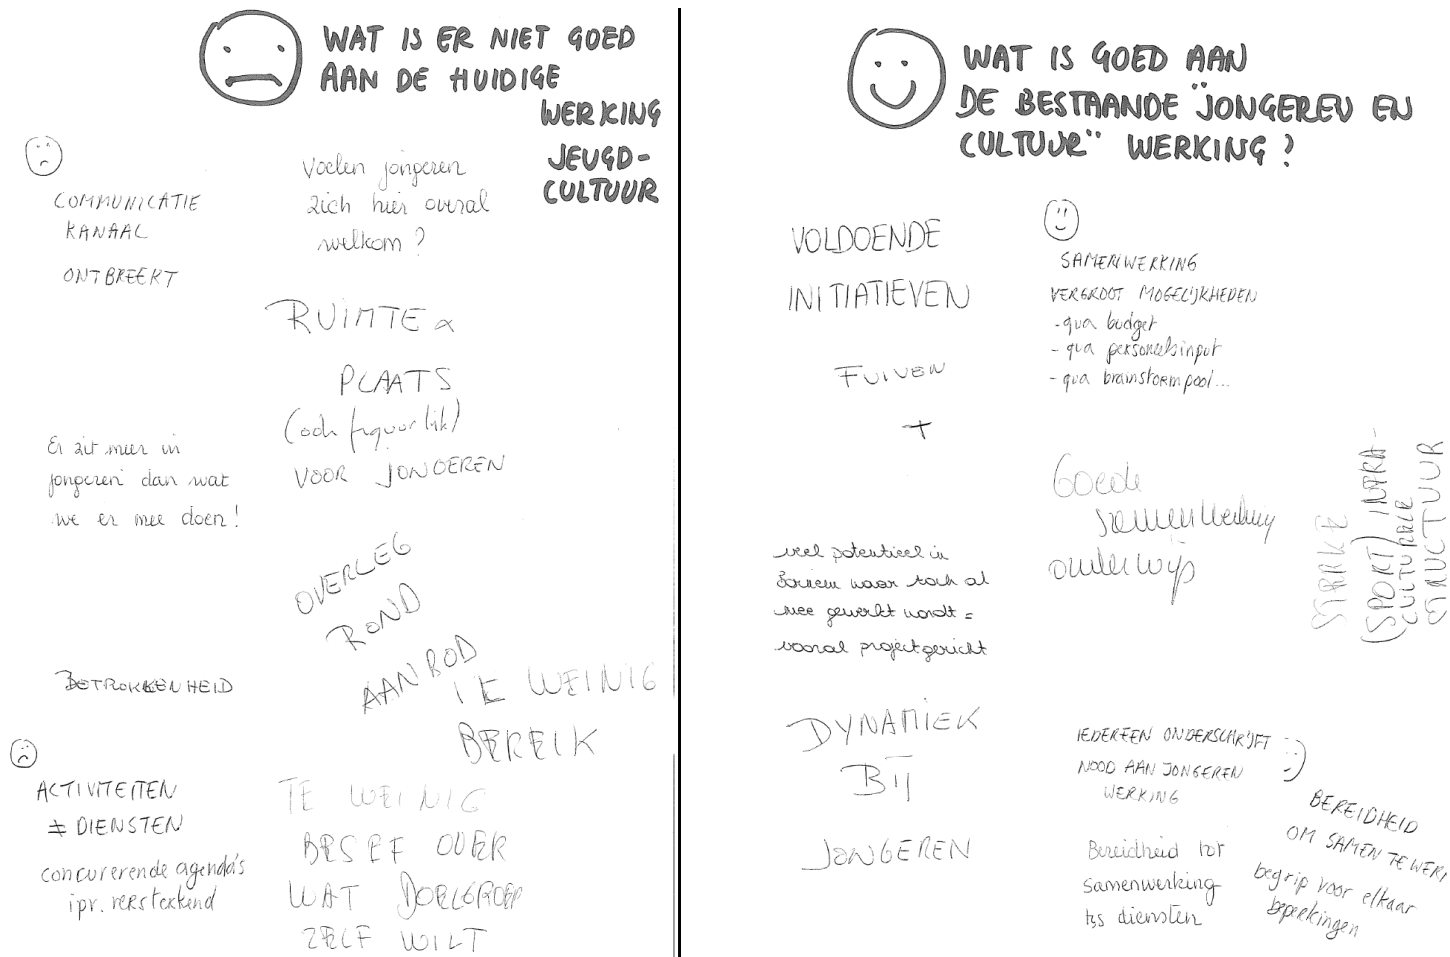 WAT IS ER NIET GOED
AAN DE HUIDIGE
WERKING
JEUGD-
CULTUUR
COMMUNICATIE
KANAAL
ONTBREEKT
Voelen jongeren
zich hier overal
welkom ?
RUIMTE &
PLAATS
(ook figuurlijk)
VOOR JONGEREN
Er zit meer in
jongeren dan wat
we er mee doen !
OVERLEG
ROND
AANBOD
BETROKKENHEID
TE WEINIG
BEREIK
ACTIVITEITEN
≠ DIENSTEN
concurerende agenda's
ipv. versterkend
TE WEINIG
BESEF OVER
WAT DOELGROEP
ZELF WILT
WAT IS GOED AAN
DE BESTAANDE "JONGEREN EN
CULTUUR" WERKING ?
VOLDOENDE
INITIATIEVEN
FUIVEN
+
SAMENWERKING
VERGROOT MOGELIJKHEDEN
- qua budget
- qua personeelsinput
- qua brainstormpool...
Goede
samenwerking
onderwijs
STERKE
(SPORT) INFRA-
CULTURELE
STRUCTUUR
veel potentieel in
Bornem waar toch al
mee gewerkt wordt =
vooral projectgericht
DYNAMIEK
BIJ
JONGEREN
IEDEREEN ONDERSCHRIJFT
NOOD AAN JONGEREN
WERKING
Bereidheid tot
samenwerking
tss diensten
BEREIDHEID
OM SAMEN TE WERK
begrip voor elkaar
beperkingen